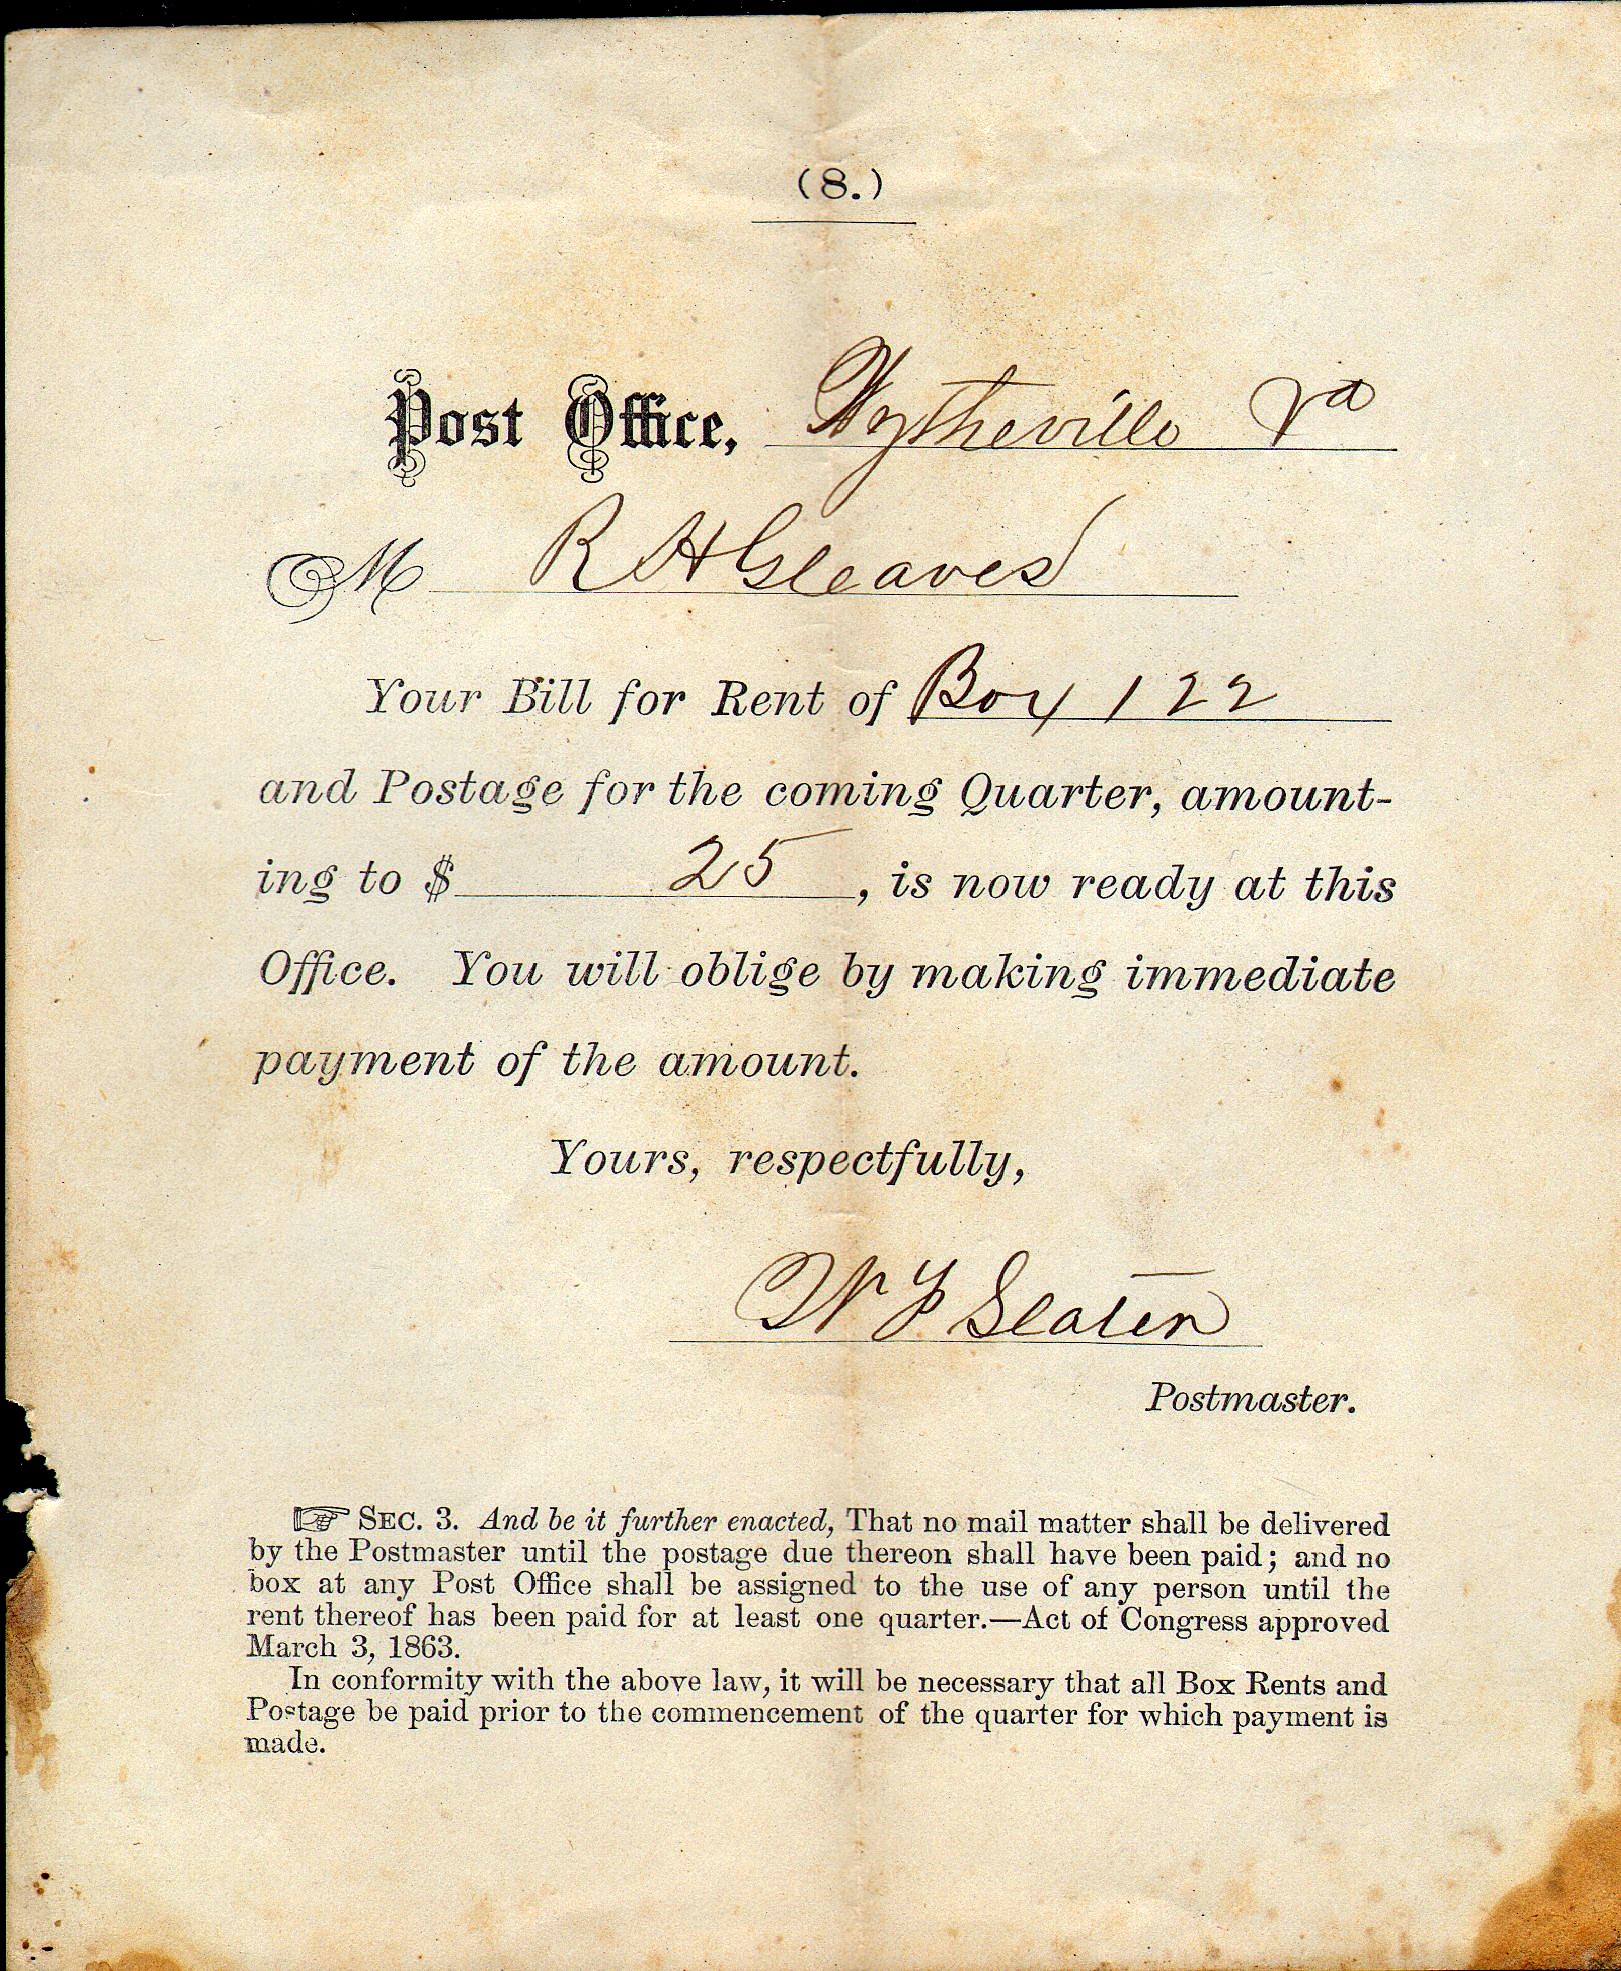 (8.)
Post Office, Wytheville Va
M R H Gleaves
Your Bill for Rent of Box 122
and Postage for the coming Quarter, amount-
ing to $ 25, is now ready at this
Office. You will oblige by making immediate
payment of the amount.
Yours, respectfully,
W
Postmaster.
☞ SEC. 3. And be it further enacted, That no mail matter shall be delivered
by the Postmaster until the postage due thereon shall have been paid; and no
box at any Post Office shall be assigned to the use of any person until the
rent thereof has been paid for at least one quarter.—Act of Congress approved
March 3, 1863.
In conformity with the above law, it will be necessary that all Box Rents and
Postage be paid prior to the commencement of the quarter for which payment is
made.